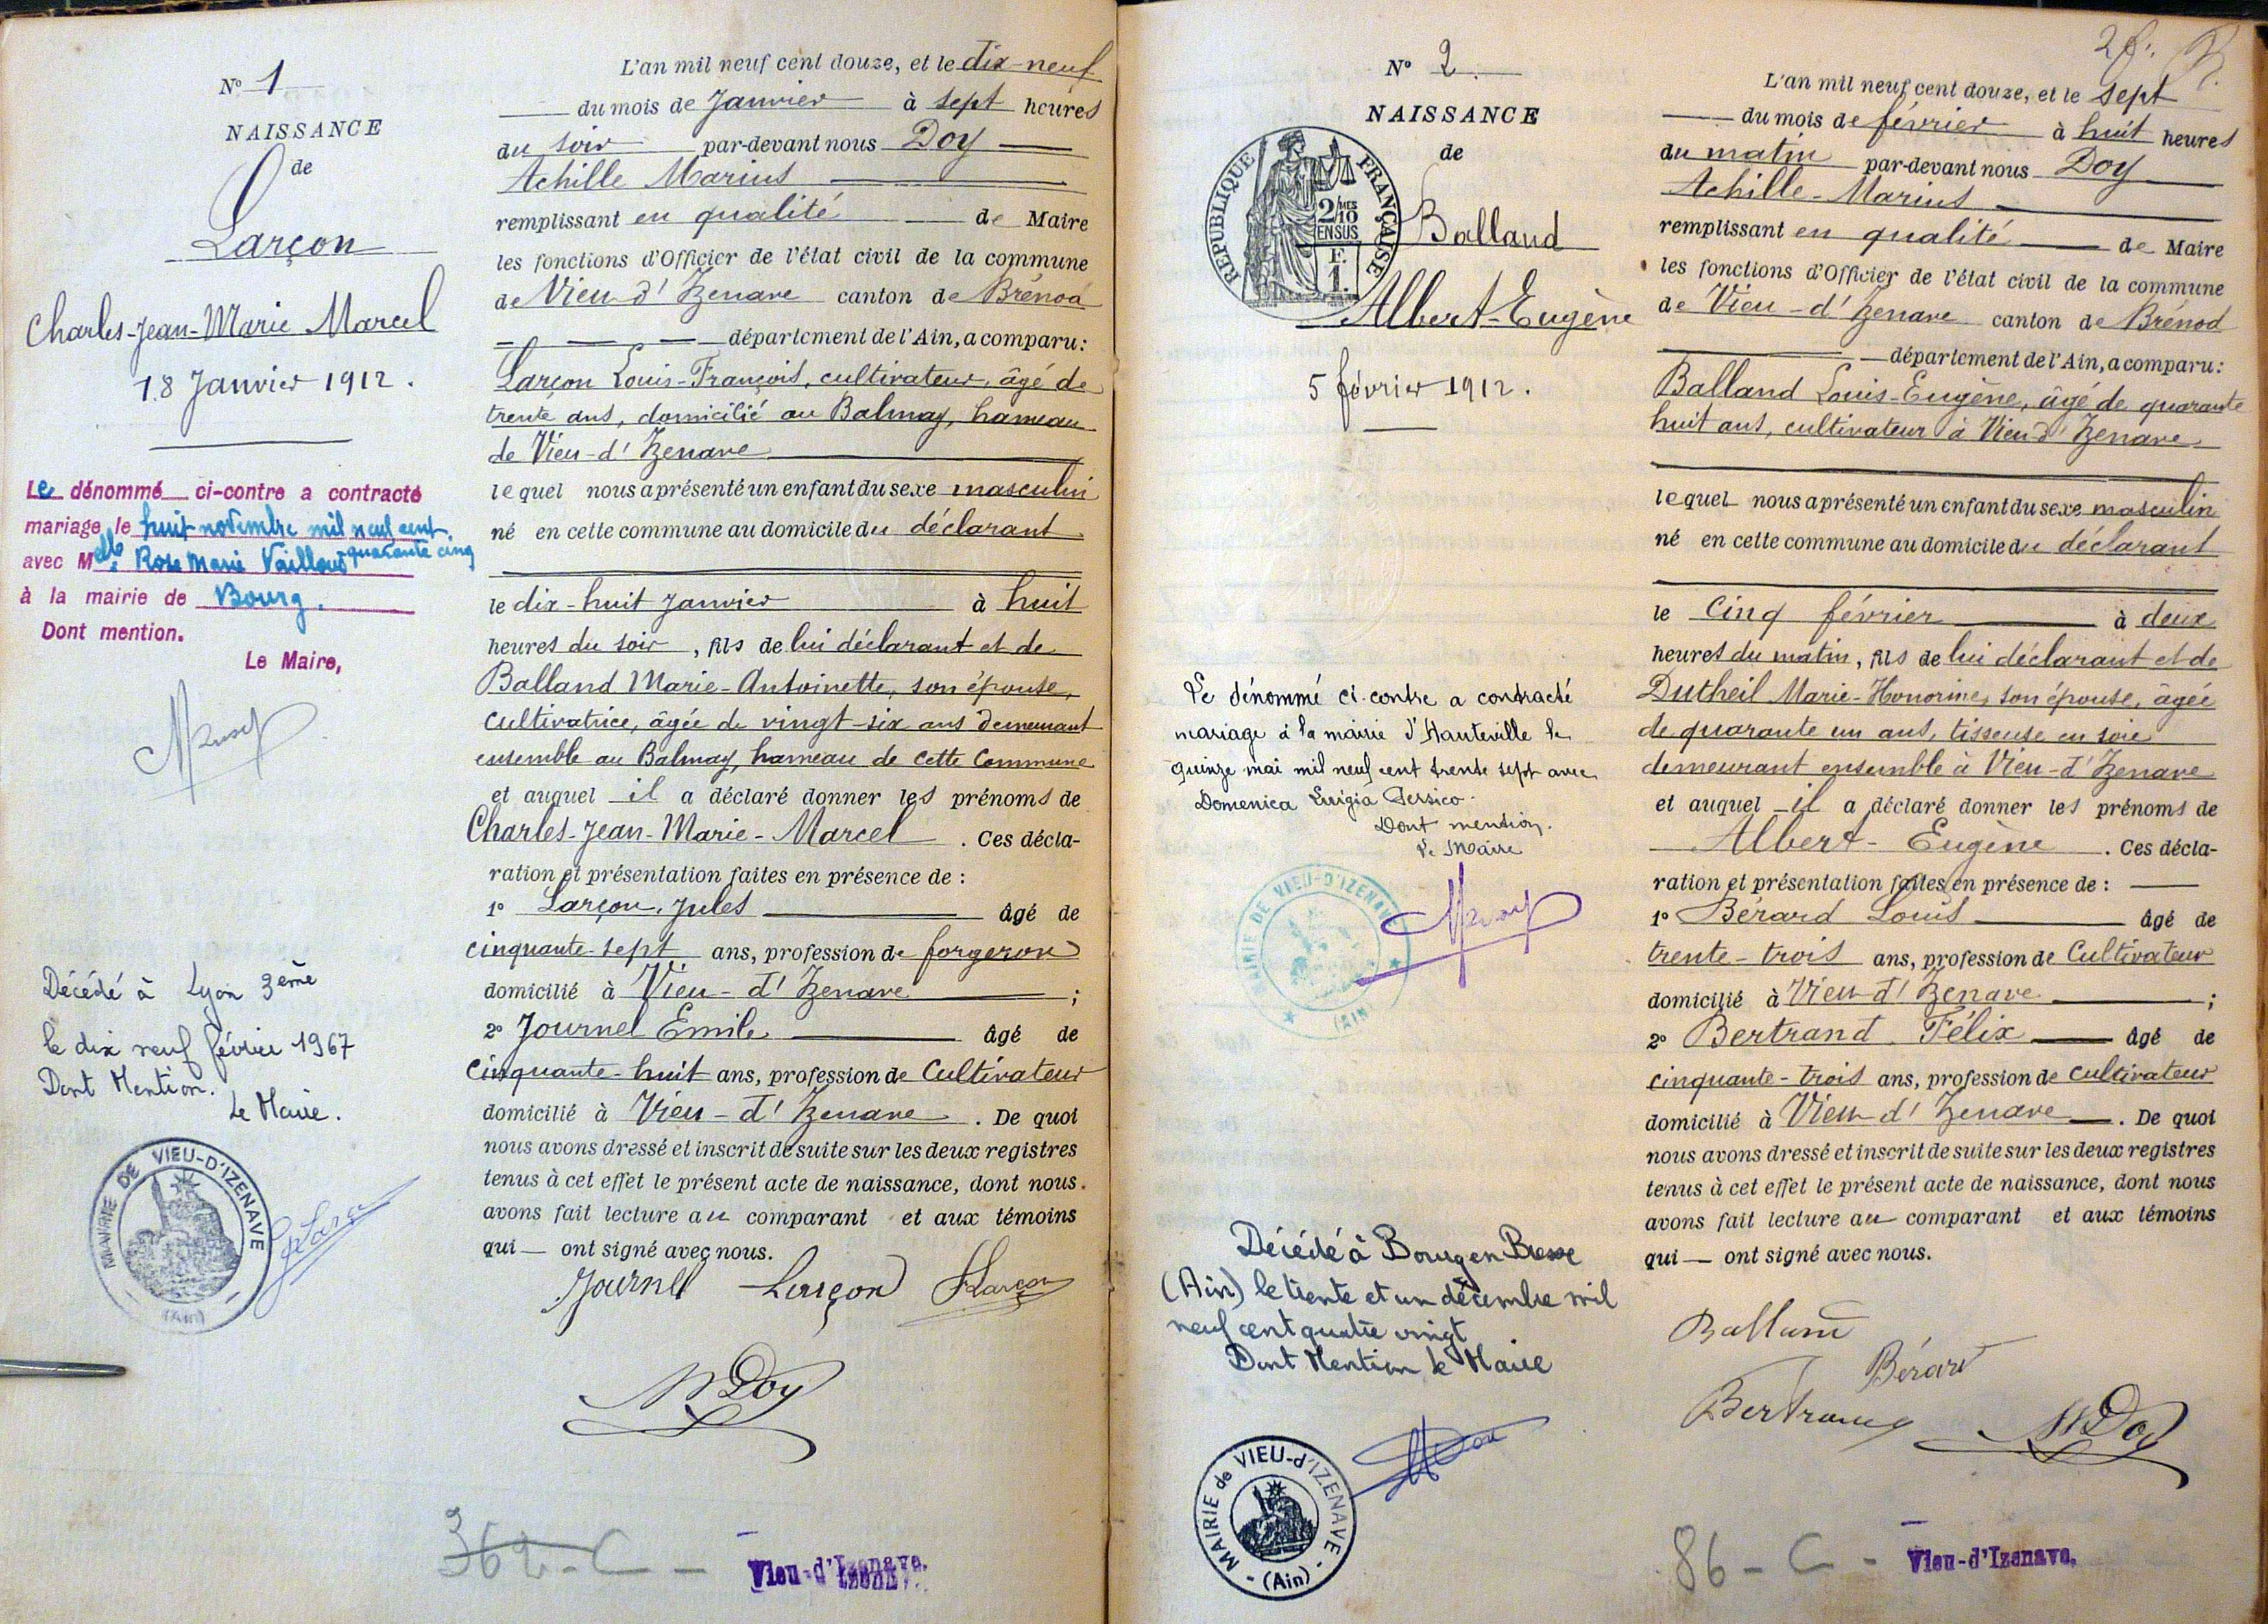 N° 1
NAISSANCE
de
Larçon
Charles-Jean-Marie Marcel
18 Janvier 1912.
Le dénommé ci-contre a contracté
mariage le huit novembre mil neuf cent
quarante cinq
avec Melle Rose Marie
à la mairie de Bourg.
Dont mention.
Le Maire,
Décédé à Lyon 3ème
le dix neuf février 1967
Dont Mention.
Le Maire.
MAIRIE DE VIEU-D'IZENAVE
(Ain)
L'an mil neuf cent douze, et le dix-neuf
du mois de Janvier à sept heures
du soir par-devant nous Doy
Achille Marius
remplissant en qualité de Maire
les fonctions d'Officier de l'état civil de la commune
de Vieu-d'Izenave canton de Brénod
département de l'Ain, a comparu:
Larçon Louis-François, cultivateur, âgé de
trente ans, domicilié au Balmay, hameau
de Vieu-d'Izenave
lequel nous a présenté un enfant du sexe masculin
né en cette commune au domicile du déclarant
le dix-huit Janvier à huit
heures du soir, fils de lui déclarant et de
Balland Marie-Antoinette, son épouse,
cultivatrice, âgée de vingt-six ans demeurant
ensemble au Balmay, hameau de cette Commune
et auquel il a déclaré donner les prénoms de
Charles-Jean-Marie-Marcel. Ces décla-
ration et présentation faites en présence de :
1° Larçon Jules âgé de
cinquante-sept ans, profession de forgeron
domicilié à Vieu-d'Izenave ;
2° Journel Emile âgé de
cinquante-huit ans, profession de Cultivateur
domicilié à Vieu-d'Izenave. De quoi
nous avons dressé et inscrit de suite sur les deux registres
tenus à cet effet le présent acte de naissance, dont nous
avons fait lecture au comparant et aux témoins
qui ont signé avec nous.
Journel Larçon Larçon
Doy
362-C-
Vieu-d'Izenave.
N° 2
NAISSANCE
de
REPUBLIQUE FRANÇAISE
2/10MES
EN SUS
F.
1.
Balland
Albert-Eugène
5 février 1912.
Le dénommé ci-contre a contracté
mariage à la mairie d'Hauteville le
quinze mai mil neuf cent trente sept avec
Domenica Luigia Persico.
Dont mention.
Le Maire
MAIRIE DE VIEU-D'IZENAVE
(AIN)
Décédé à Bourg en Bresse
(Ain) le trente et un décembre mil
neuf cent quatre vingt
Dont Mention le Maire
MAIRIE de VIEU-d'IZENAVE
- (Ain) -
L'an mil neuf cent douze, et le sept
du mois de février à huit heures
du matin par-devant nous Doy
Achille-Marius
remplissant en qualité de Maire
les fonctions d'Officier de l'état civil de la commune
de Vieu-d'Izenave canton de Brénod
département de l'Ain, a comparu:
Balland Louis-Eugène, âgé de quarante
huit ans, cultivateur à Vieu-d'Izenave
lequel nous a présenté un enfant du sexe masculin
né en cette commune au domicile du déclarant
le cinq février à deux
heures du matin, fils de lui déclarant et de
Dutheil Marie-Honorine, son épouse, âgée
de quarante un ans, tisseuse en soie
demeurant ensemble à Vieu-d'Izenave
et auquel il a déclaré donner les prénoms de
Albert-Eugène. Ces décla-
ration et présentation faites en présence de :
1° Bérard Louis âgé de
trente-trois ans, profession de Cultivateur
domicilié à Vieu-d'Izenave ;
2° Bertrand Félix âgé de
cinquante-trois ans, profession de cultivateur
domicilié à Vieu-d'Izenave. De quoi
nous avons dressé et inscrit de suite sur les deux registres
tenus à cet effet le présent acte de naissance, dont nous
avons fait lecture au comparant et aux témoins
qui ont signé avec nous.
Balland
Bérard
Bertrand
Doy
86-C-
Vieu-d'Izenave.